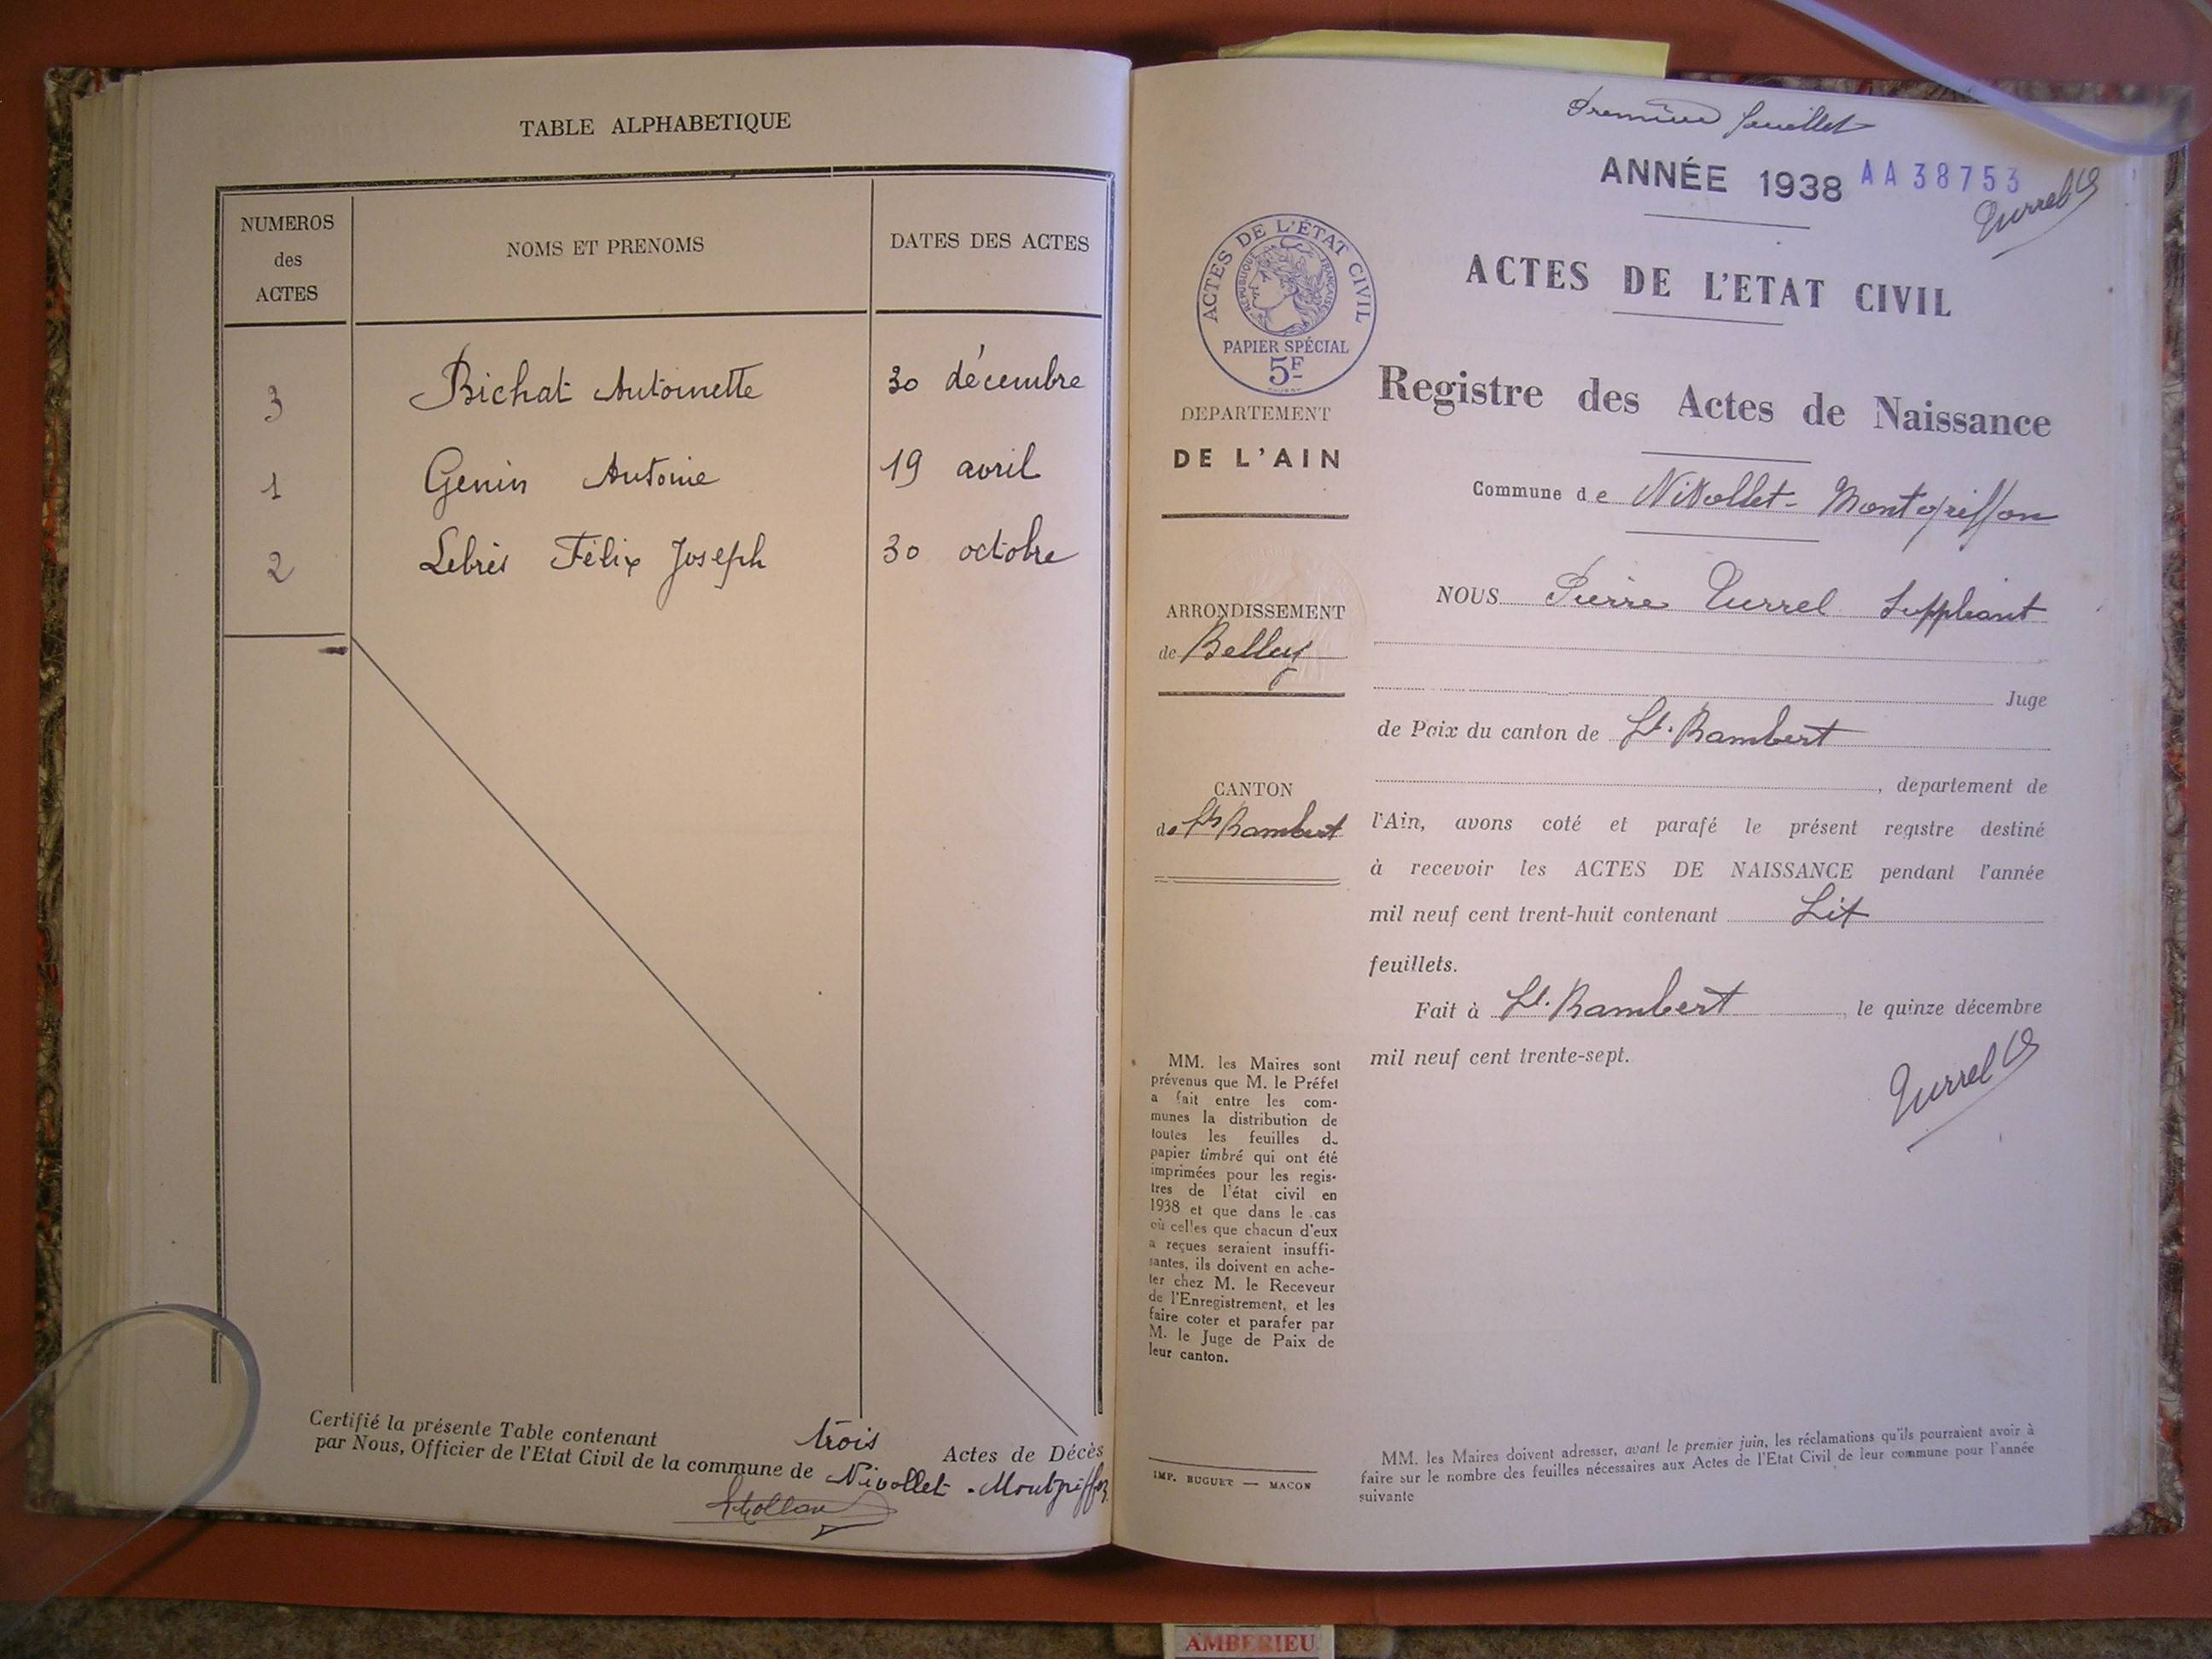 TABLE ALPHABETIQUE
NUMEROS
des
ACTES
NOMS ET PRENOMS
DATES DES ACTES
3 Bichat Antoinette 30 décembre
1 Genin Antoine 19 avril
2 Lebris Félix Joseph 30 octobre
Certifié la présente Table contenant trois Actes de Décès
par Nous, Officier de l'Etat Civil de la commune de Nivollet-Montgriffon
Première feuillet
ANNÉE 1938 AA38753
Turrel
ACTES DE L'ÉTAT CIVIL
RÉPUBLIQUE FRANÇAISE
PAPIER SPÉCIAL
5F
ACTES DE L'ETAT CIVIL
Registre des Actes de Naissance
DEPARTEMENT
DE L'AIN
Commune de Nivollet-Montgriffon
ARRONDISSEMENT
de Belley
CANTON
de St Rambert
NOUS Pierre Turrel Suppléant
Juge
de Paix du canton de St. Rambert
, departement de
l'Ain, avons coté et parafé le présent registre destiné
à recevoir les ACTES DE NAISSANCE pendant l'année
mil neuf cent trent-huit contenant
feuillets.
Fait à St. Rambert, le quinze décembre
mil neuf cent trente-sept.
Turrel
MM. les Maires sont
prévenus que M. le Préfet
a fait entre les com-
munes la distribution de
toutes les feuilles de
papier timbré qui ont été
imprimées pour les regis-
tres de l'état civil en
1938 et que dans le cas
où celles que chacun d'eux
a reçues seraient insuffi-
santes, ils doivent en ache-
ter chez M. le Receveur
de l'Enregistrement, et les
faire coter et parafer par
M. le Juge de Paix de
leur canton.
IMP. BUGUET — MACON
MM. les Maires doivent adresser, avant le premier juin, les réclamations qu'ils pourraient avoir à
faire sur le nombre des feuilles nécessaires aux Actes de l'Etat Civil de leur commune pour l'année
suivante
AMBERIEU